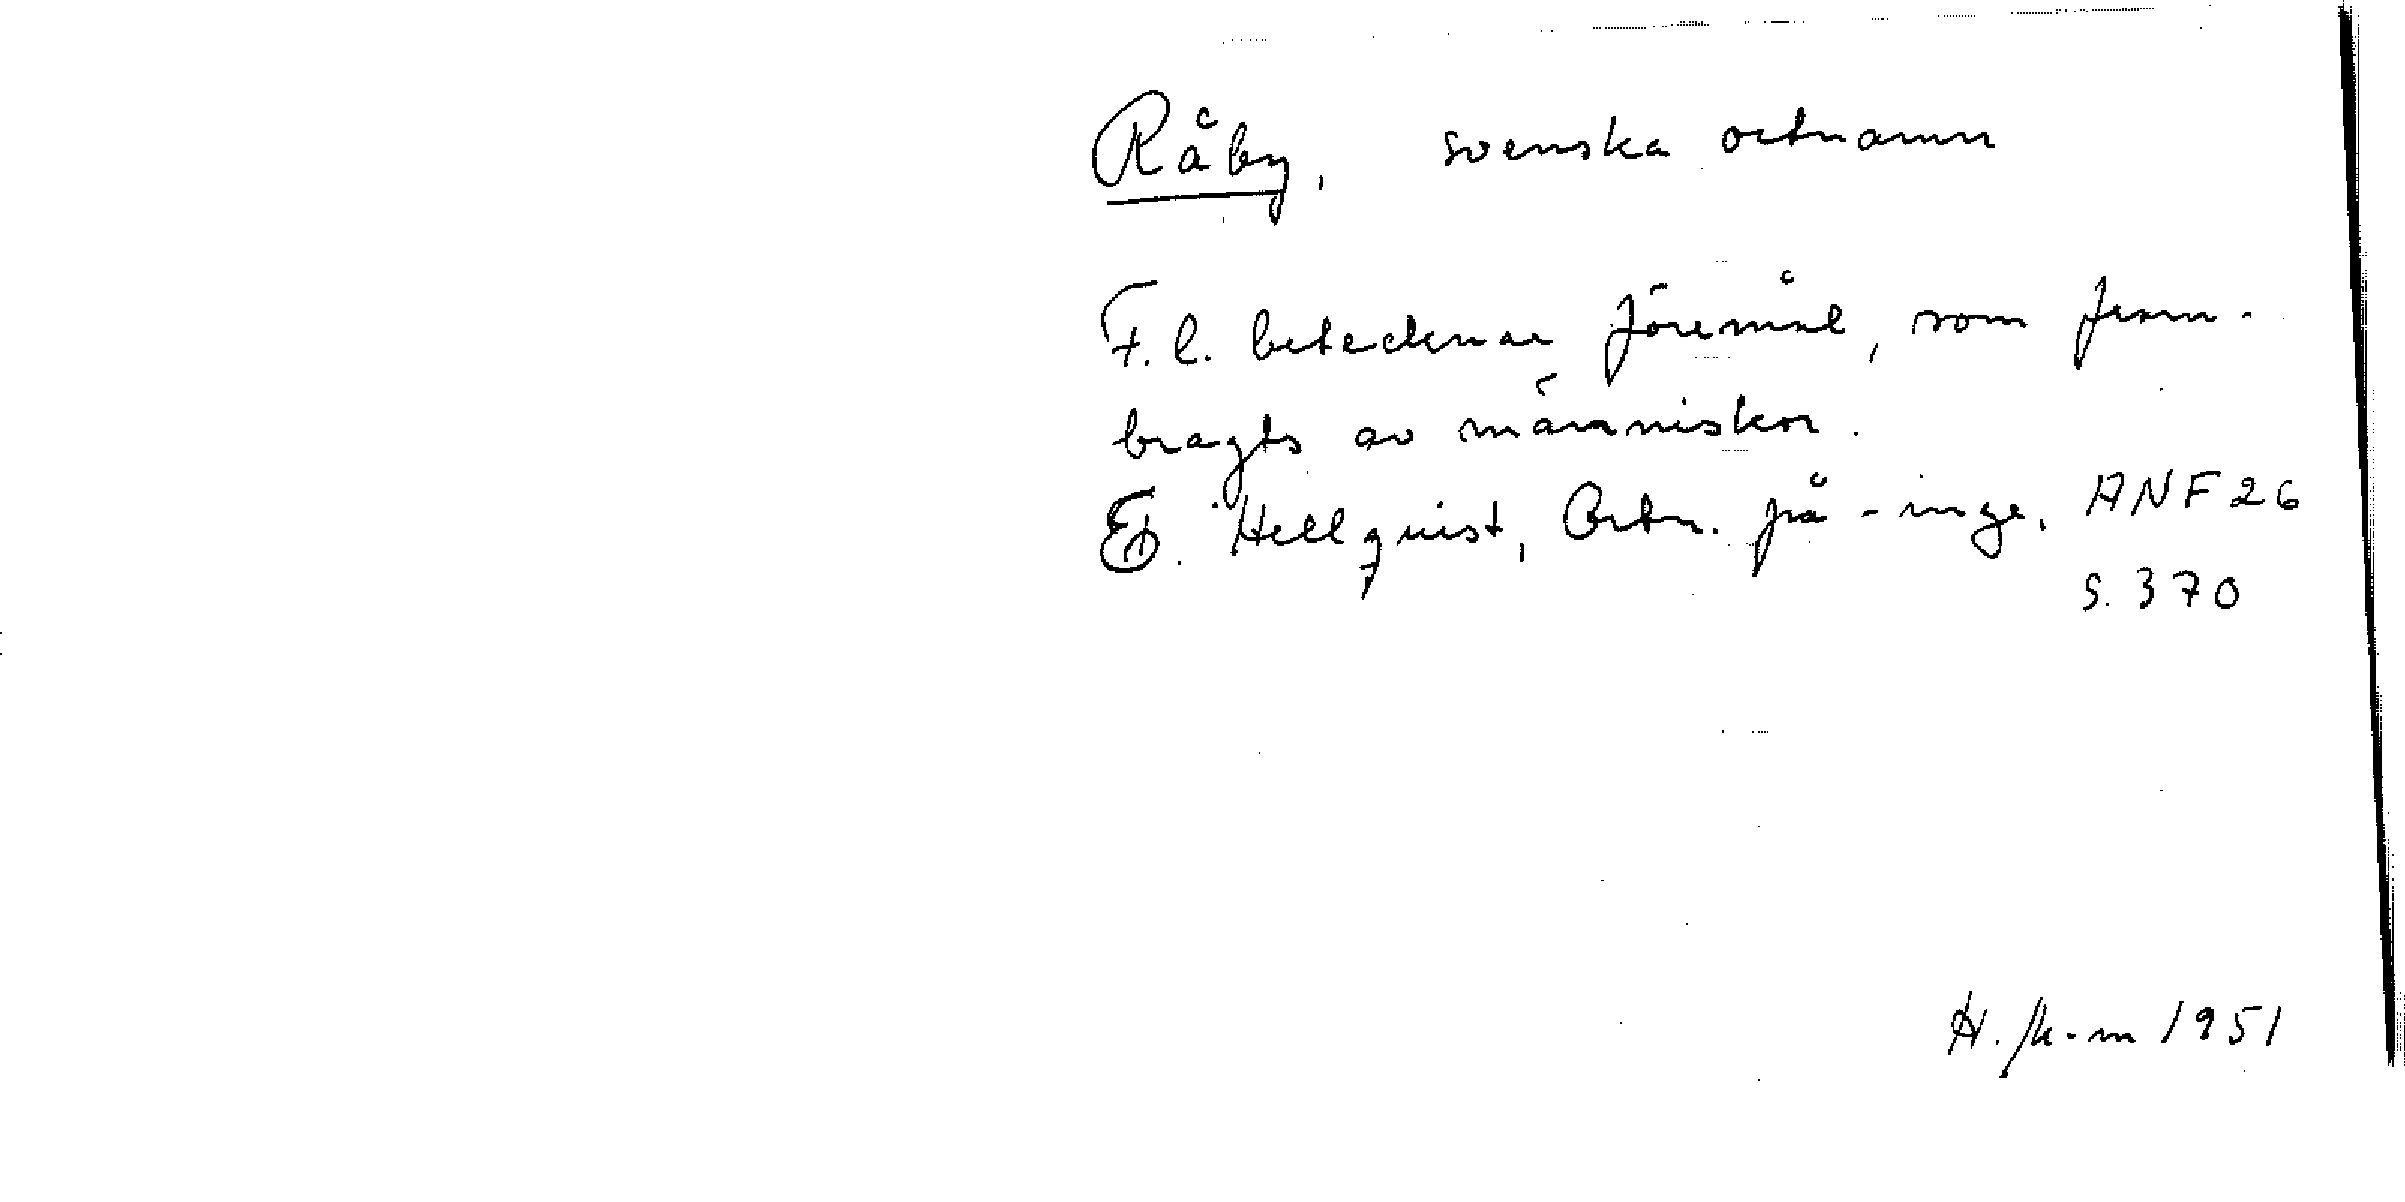 Råby, svenska ortnamn
F. l. betecknar föremål, som fram-
bragts av människor.
E. Hellquist, Ortn. på -inge, ANF 26
s. 370
H. 1951